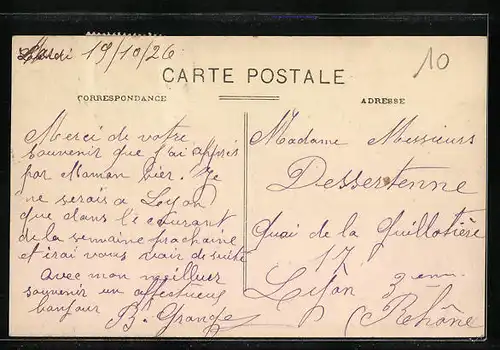 Mardi 19/10/26
10
CARTE POSTALE
CORRESPONDANCE
ADRESSE
Merci de votre
souvenir que j'ai appris
par Maman hier. Je
ne serais a Lyon
que dans le courant
de la semaine prochaine
et irai vous voir de suite
avec mon meilleur
souvenir un affectueux
bonjour
B. Grange
Madame Messieurs
Dessertenne
Quai de la Guillotière
17
Lyon 3 em
(Rhône)